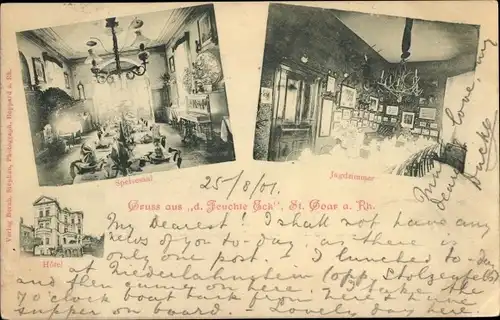 Speisesaal
Jagdzimmer
Verlag Bernh. Stephan, Photograph, Boppard a. Rh.
25/8/01.
Gruss aus „d. Feuchte Eck", St. Goar a. Rh.
Hôtel
My Dearest! I shall not have any
news of you to-day as there is
only one post. I lunched to-day
at Niederlahnstein (opp. Stolzenfels)
and then came on here. I take the
7 o'clock boat back from here & have
supper on board. - Lovely day here
love, my